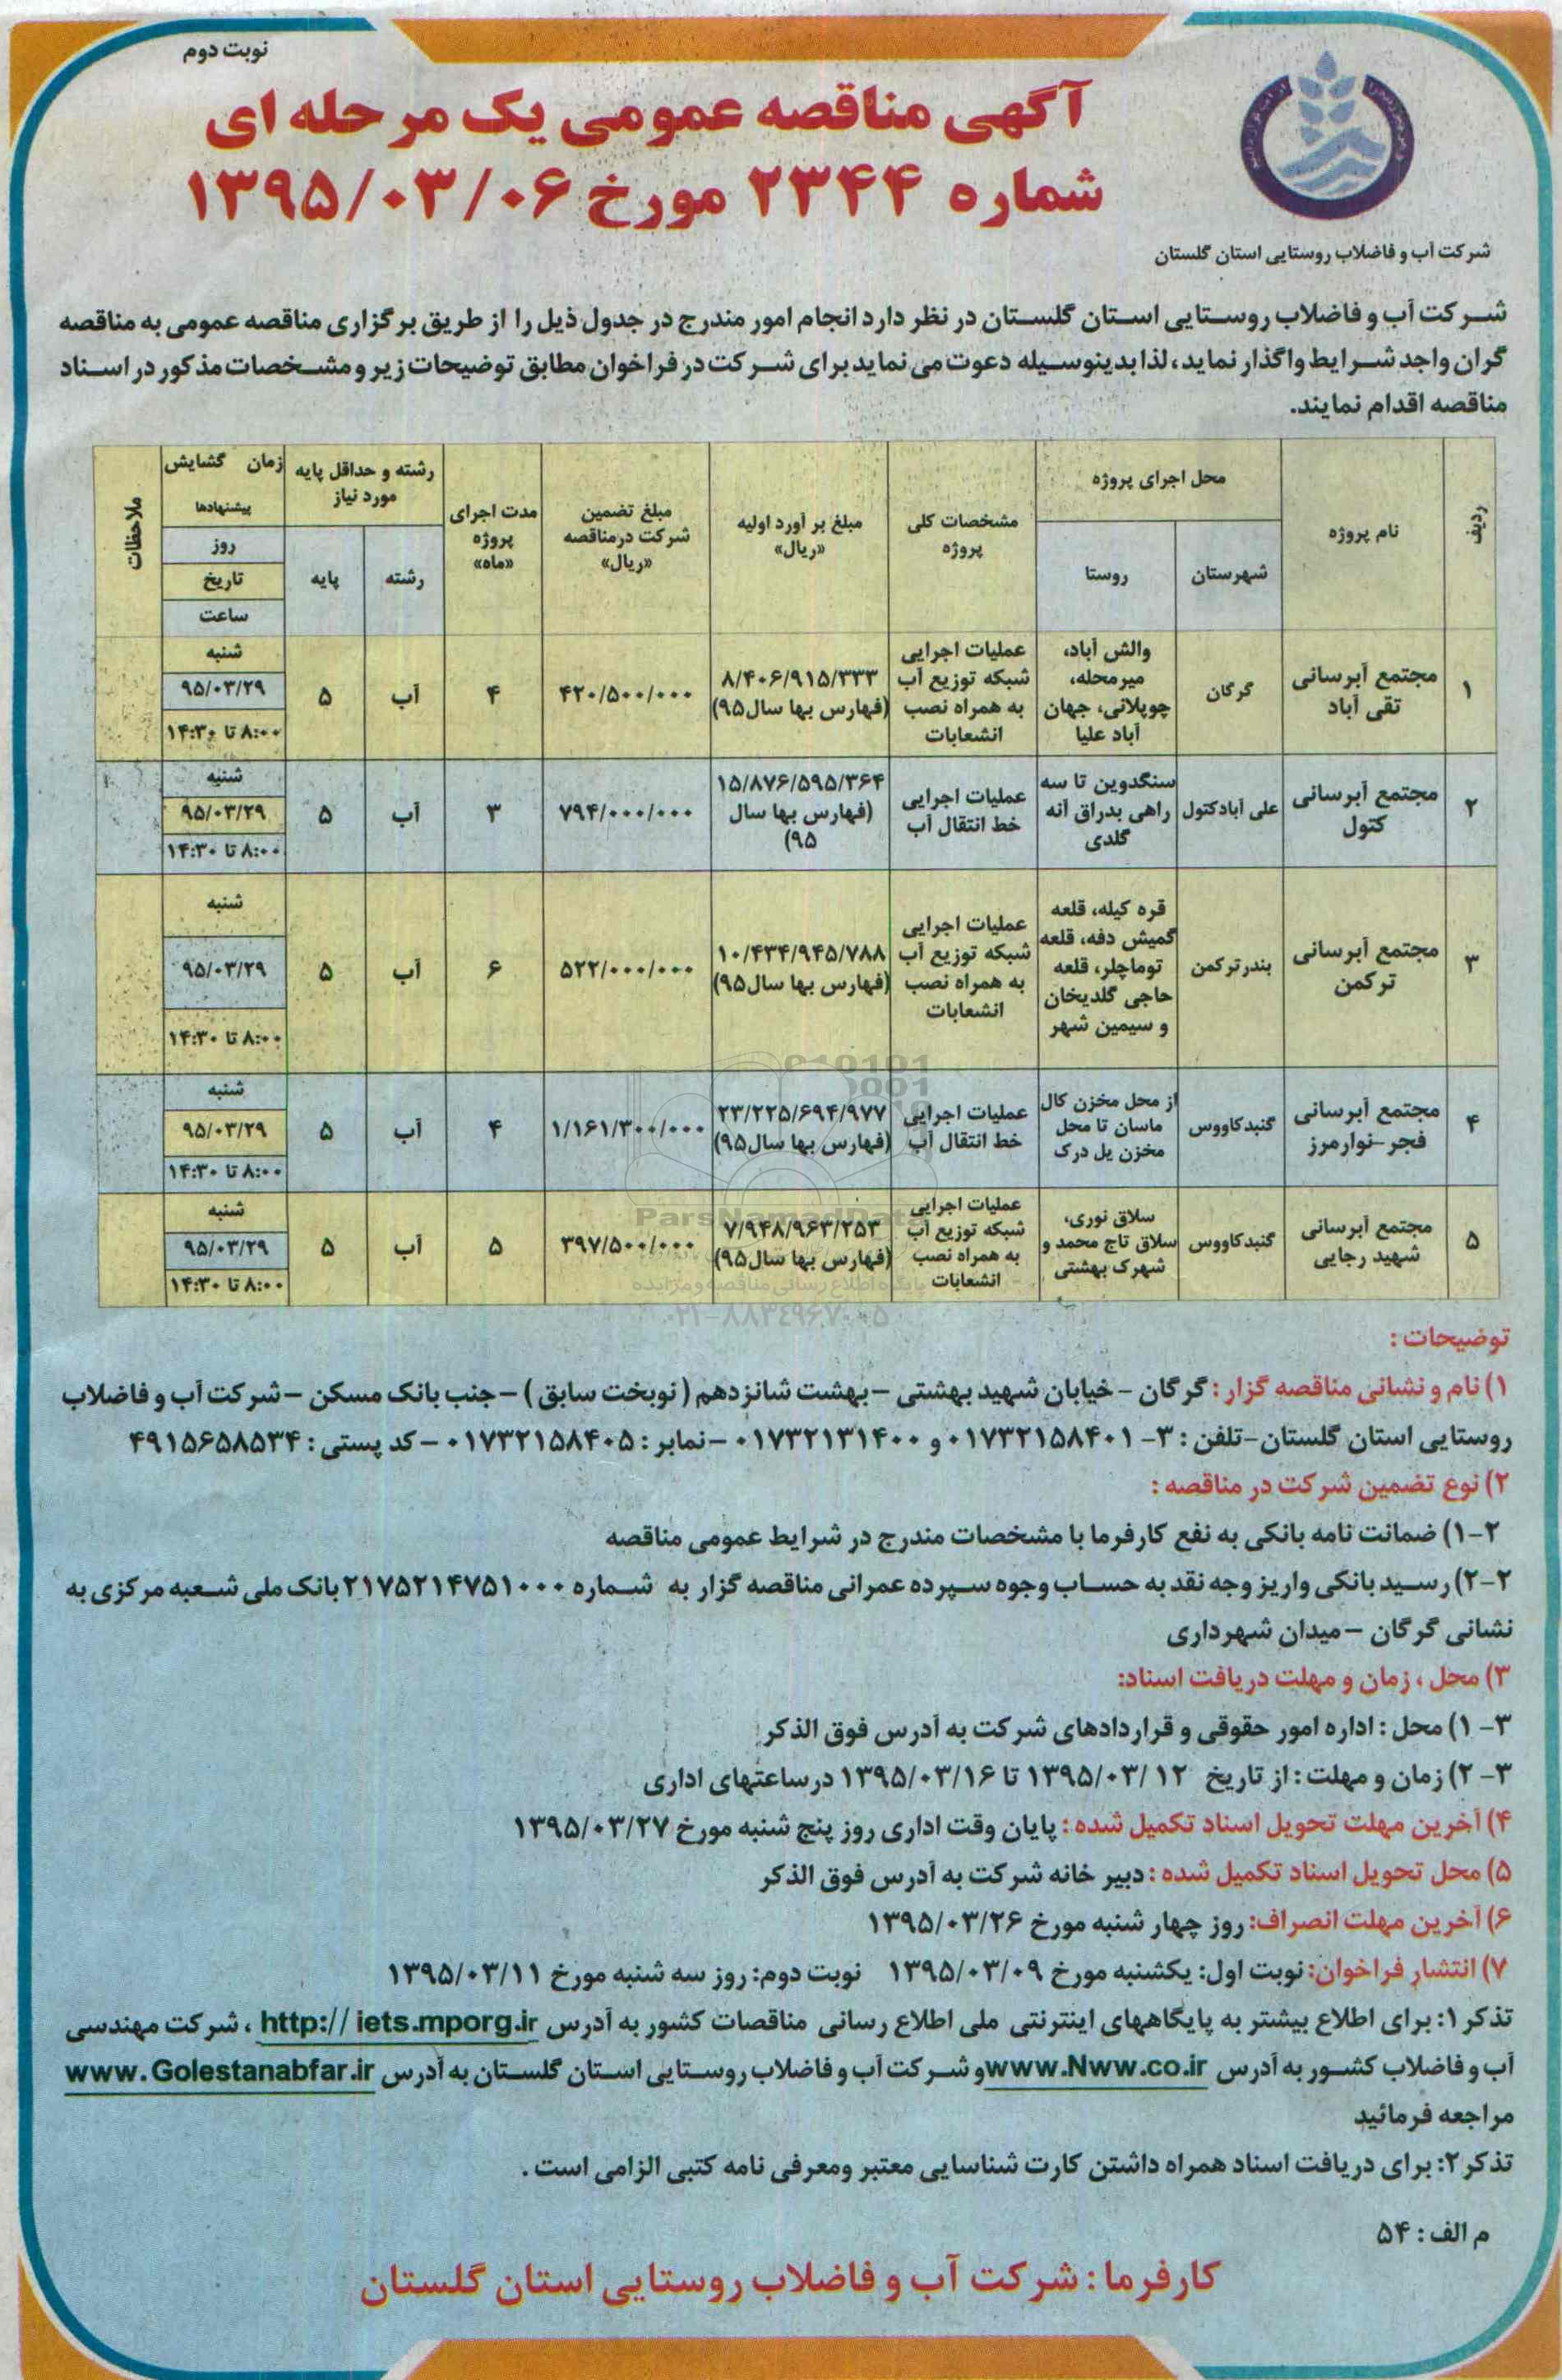 نوبت دوم
آگهی مناقصه عمومی یک مرحله ای
شماره ۲۳۴۴ مورخ ۱۳۹۵/۰۳/۰۶
شرکت آب و فاضلاب روستایی استان گلستان
شرکت آب و فاضلاب روستایی استان گلستان در نظر دارد انجام امور مندرج در جدول ذیل را از طریق برگزاری مناقصه عمومی به مناقصه
گران واجد شرایط واگذار نماید، لذا بدینوسیله دعوت می نماید برای شرکت در فراخوان مطابق توضیحات زیر و مشخصات مذکور در اسناد
مناقصه اقدام نمایند.
ردیف
نام پروژه
محل اجرای پروژه
شهرستان
روستا
مشخصات کلی
پروژه
مبلغ بر آورد اولیه
«ریال»
مبلغ تضمین
شرکت درمناقصه
«ریال»
مدت اجرای
پروژه
«ماه»
رشته و حداقل پایه
مورد نیاز
رشته
پایه
زمان گشایش
پیشنهادها
روز
تاریخ
ساعت
ملاحظات
۱
مجتمع آبرسانی
تقی آباد
گرگان
والش آباد،
میرمحله،
چوپلانی، جهان
آباد علیا
عملیات اجرایی
شبکه توزیع آب
به همراه نصب
انشعابات
۸/۴۰۶/۹۱۵/۳۳۳
(فهارس بها سال۹۵)
۴۲۰/۵۰۰/۰۰۰
۴
آب
۵
شنبه
۹۵/۰۳/۲۹
۸:۰۰ تا ۱۴:۳۰
۲
مجتمع آبرسانی
کتول
علی آبادکتول
سنگدوین تا سه
راهی بدراق آنه
گلدی
عملیات اجرایی
خط انتقال آب
۱۵/۸۷۶/۵۹۵/۳۶۴
(فهارس بها سال
۹۵)
۷۹۴/۰۰۰/۰۰۰
۳
آب
۵
شنبه
۹۵/۰۳/۲۹
۸:۰۰ تا ۱۴:۳۰
۳
مجتمع آبرسانی
ترکمن
بندرترکمن
قره کیله، قلعه
گمیش دفه، قلعه
توماچلر، قلعه
حاجی گلدیخان
و سیمین شهر
عملیات اجرایی
شبکه توزیع آب
به همراه نصب
انشعابات
۱۰/۴۳۴/۹۴۵/۷۸۸
(فهارس بها سال۹۵)
۵۲۲/۰۰۰/۰۰۰
۶
آب
۵
شنبه
۹۵/۰۳/۲۹
۸:۰۰ تا ۱۴:۳۰
۴
مجتمع آبرسانی
فجر-نوارمرز
گنبدکاووس
از محل مخزن کال
ماسان تا محل
مخزن یل درک
عملیات اجرایی
خط انتقال آب
۲۳/۲۲۵/۶۹۴/۹۷۷
(فهارس بها سال۹۵)
۱/۱۶۱/۳۰۰/۰۰۰
۴
آب
۵
شنبه
۹۵/۰۳/۲۹
۸:۰۰ تا ۱۴:۳۰
۵
مجتمع آبرسانی
شهید رجایی
گنبدکاووس
سلاق نوری،
سلاق تاج محمد و
شهرک بهشتی
عملیات اجرایی
شبکه توزیع آب
به همراه نصب
انشعابات
۷/۹۴۸/۹۶۳/۲۵۳
(فهارس بها سال۹۵)
۳۹۷/۵۰۰/۰۰۰
۵
آب
۵
شنبه
۹۵/۰۳/۲۹
۸:۰۰ تا ۱۴:۳۰
ParsNamadData
پایگاه اطلاع رسانی مناقصه و مزایده
۰۲۱-۸۸۳۴۹۶۷۰-۵
توضیحات :
۱) نام و نشانی مناقصه گزار : گرگان - خیابان شهید بهشتی – بهشت شانزدهم ( نوبخت سابق ) – جنب بانک مسکن – شرکت آب و فاضلاب
روستایی استان گلستان-تلفن : ۳- ۰۱۷۳۲۱۵۸۴۰۱ و ۰۱۷۳۲۱۳۱۴۰۰ – نمابر : ۰۱۷۳۲۱۵۸۴۰۵ – کد پستی : ۴۹۱۵۶۵۸۵۳۴
۲) نوع تضمین شرکت در مناقصه :
۲-۱) ضمانت نامه بانکی به نفع کارفرما با مشخصات مندرج در شرایط عمومی مناقصه
۲-۲) رسید بانکی واریز وجه نقد به حساب وجوه سپرده عمرانی مناقصه گزار به شماره ۲۱۷۵۲۱۴۷۵۱۰۰۰ بانک ملی شعبه مرکزی به
نشانی گرگان – میدان شهرداری
۳) محل ، زمان و مهلت دریافت اسناد:
۳- ۱) محل : اداره امور حقوقی و قراردادهای شرکت به آدرس فوق الذکر
۳- ۲) زمان و مهلت : از تاریخ ۱۳۹۵/۰۳/۱۲ تا ۱۳۹۵/۰۳/۱۶ درساعتهای اداری
۴) آخرین مهلت تحویل اسناد تکمیل شده : پایان وقت اداری روز پنج شنبه مورخ ۱۳۹۵/۰۳/۲۷
۵) محل تحویل اسناد تکمیل شده : دبیر خانه شرکت به آدرس فوق الذکر
۶) آخرین مهلت انصراف: روز چهار شنبه مورخ ۱۳۹۵/۰۳/۲۶
۷) انتشار فراخوان: نوبت اول: یکشنبه مورخ ۱۳۹۵/۰۳/۰۹ نوبت دوم: روز سه شنبه مورخ ۱۳۹۵/۰۳/۱۱
تذکر ۱: برای اطلاع بیشتر به پایگاههای اینترنتی ملی اطلاع رسانی مناقصات کشور به آدرس http:// iets.mporg.ir ، شرکت مهندسی
آب و فاضلاب کشور به آدرس www.Nww.co.ir و شرکت آب و فاضلاب روستایی استان گلستان به آدرس www.Golestanabfar.ir
مراجعه فرمائید
تذکر ۲: برای دریافت اسناد همراه داشتن کارت شناسایی معتبر ومعرفی نامه کتبی الزامی است .
م الف : ۵۴
کارفرما : شرکت آب و فاضلاب روستایی استان گلستان